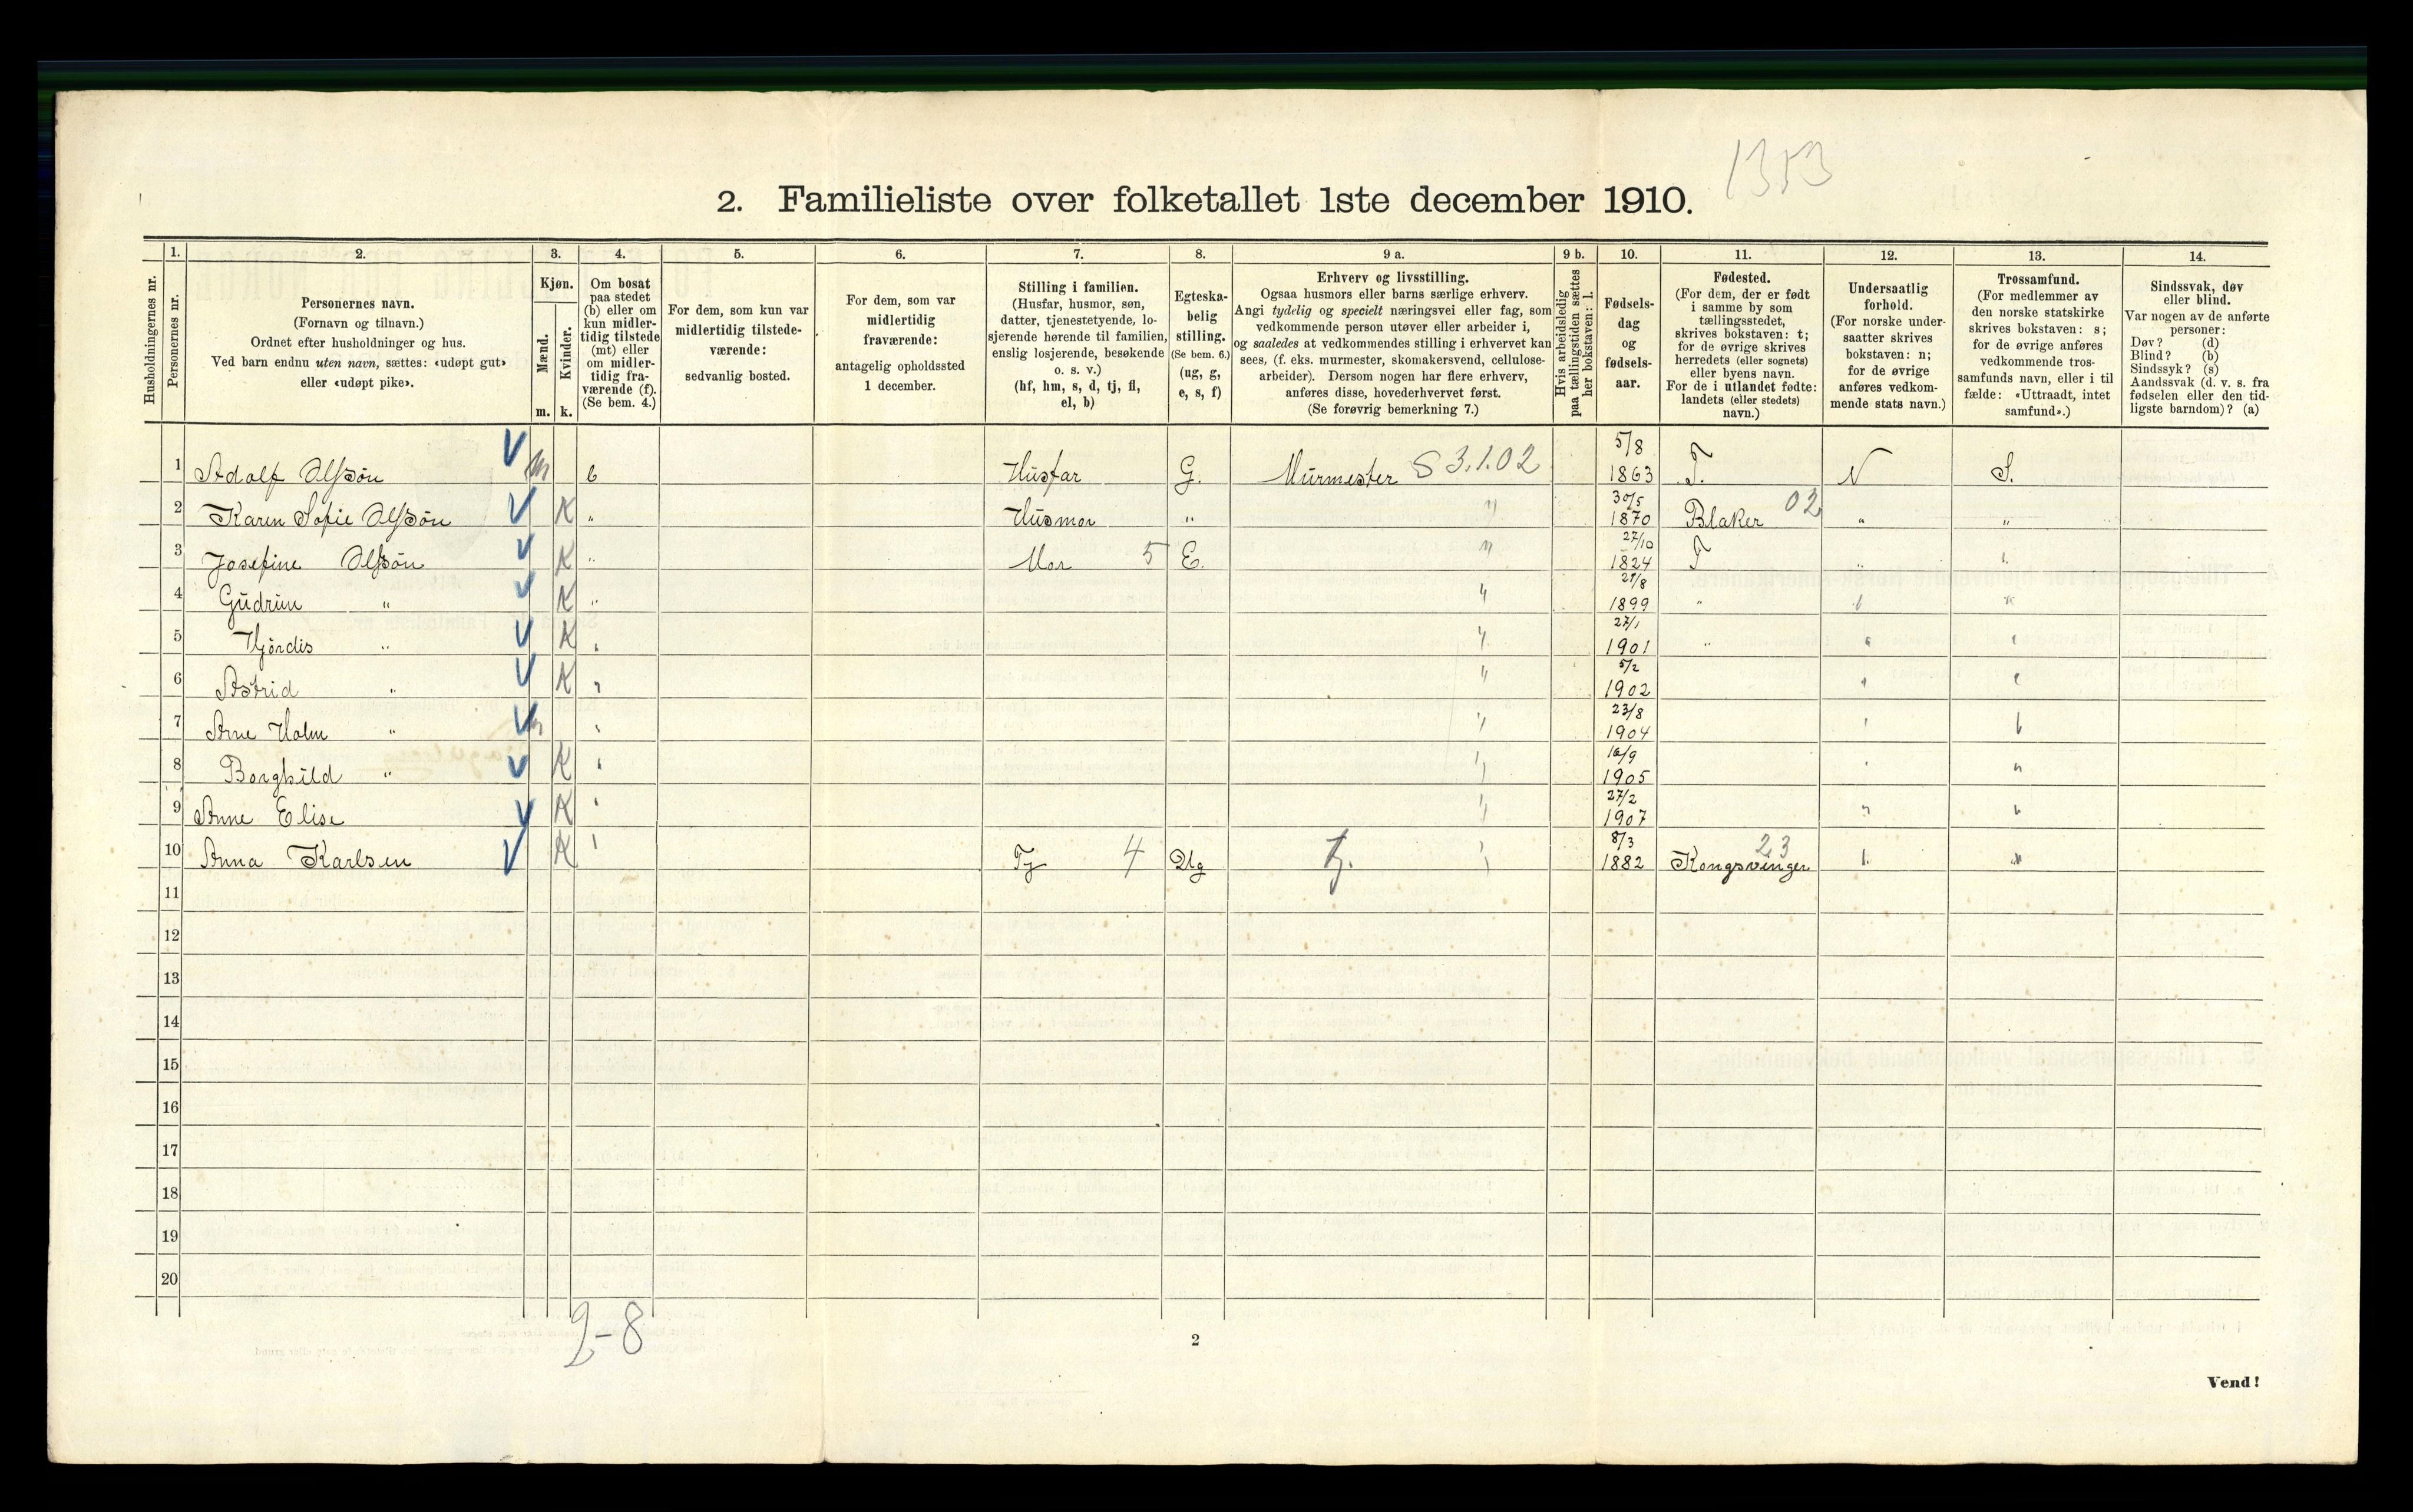 1353
2. Familieliste over folketallet 1ste december 1910.
Husholdningernes nr.
1. Personernes nr.
2. Personernes navn.
(Fornavn og tilnavn.)
Ordnet efter husholdninger og hus.
Ved barn endnu uten navn, sættes: «udøpt gut»
eller «udøpt pike».
3. Kjøn.
Mænd. m.
Kvinder. k.
4. Om bosat
paa stedet
(b) eller om
kun midler-
tidig tilstede
(mt) eller
om midler-
tidig fra-
værende (f).
(Se bem. 4.)
5. For dem, som kun var
midlertidig tilstede-
værende:
sedvanlig bosted.
6. For dem, som var
midlertidig
fraværende:
antagelig opholdssted
1 december.
7. Stilling i familien.
(Husfar, husmor, søn,
datter, tjenestetyende, lo-
sjerende hørende til familien,
enslig losjerende, besøkende
o. s. v.)
(hf, hm, s, d, tj, fl,
el, b)
8. Egteska-
belig
stilling.
(Se bem. 6.)
(ug, g,
e, s, f)
9 a. Erhverv og livsstilling.
Ogsaa husmors eller barns særlige erhverv.
Angi tydelig og specielt næringsvei eller fag, som
vedkommende person utøver eller arbeider i,
og saaledes at vedkommendes stilling i erhvervet kan
sees, (f. eks. murmester, skomakersvend, cellulose-
arbeider). Dersom nogen har flere erhverv,
anføres disse, hovederhvervet først.
(Se forøvrig bemerkning 7.)
9 b. Hvis arbeidsledig
paa tællingstiden sættes
her bokstaven: l.
10. Fødsels-
dag
og
fødsels-
aar.
11. Fødested.
(For dem, der er født
i samme by som
tællingsstedet,
skrives bokstaven: t;
for de øvrige skrives
herredets (eller sognets)
eller byens navn.
For de i utlandet fødte:
landets (eller stedets)
navn.)
12. Undersaatlig
forhold.
(For norske under-
saatter skrives
bokstaven: n;
for de øvrige
anføres vedkom-
mende stats navn.)
13. Trossamfund.
(For medlemmer av
den norske statskirke
skrives bokstaven: s;
for de øvrige anføres
vedkommende tros-
samfunds navn, eller i til
fælde: «Uttraadt, intet
samfund».)
14. Sindssvak, døv
eller blind.
Var nogen av de anførte
personer:
Døv? (d)
Blind? (b)
Sindssyk? (s)
Aandssvak (d. v. s. fra
fødselen eller den tid-
ligste barndom)? (a)
1 Adolf Olssøn m b Husfar G. Murmester S 3.1.02 5/8 1863 T. N S.
2 Karen Sofie Olssøn K " Husmor " " 30/5 1870 Blaker 02 " "
3 Josefine Olssøn K " Mor 5 E. " 27/10 1824 T " "
4 Gudrun " K " " 1899 " " "
5 Hjørdis " K " " 27/1 1901 " " "
6 Astrid " K " " 5/2 1902 " "
7 Arne Holm " m " " 23/8 1904 " "
8 Borghild " K " " 1905 " "
9 Anne Elise K " " 27/2 1907 " "
10 Anna Karlsen K " Tj 4 Ug tj. " 8/3 1882 Kongsvinger 23 " "
11
12
13
14
15
16
17
18
19
20
2-8
2
Vend!